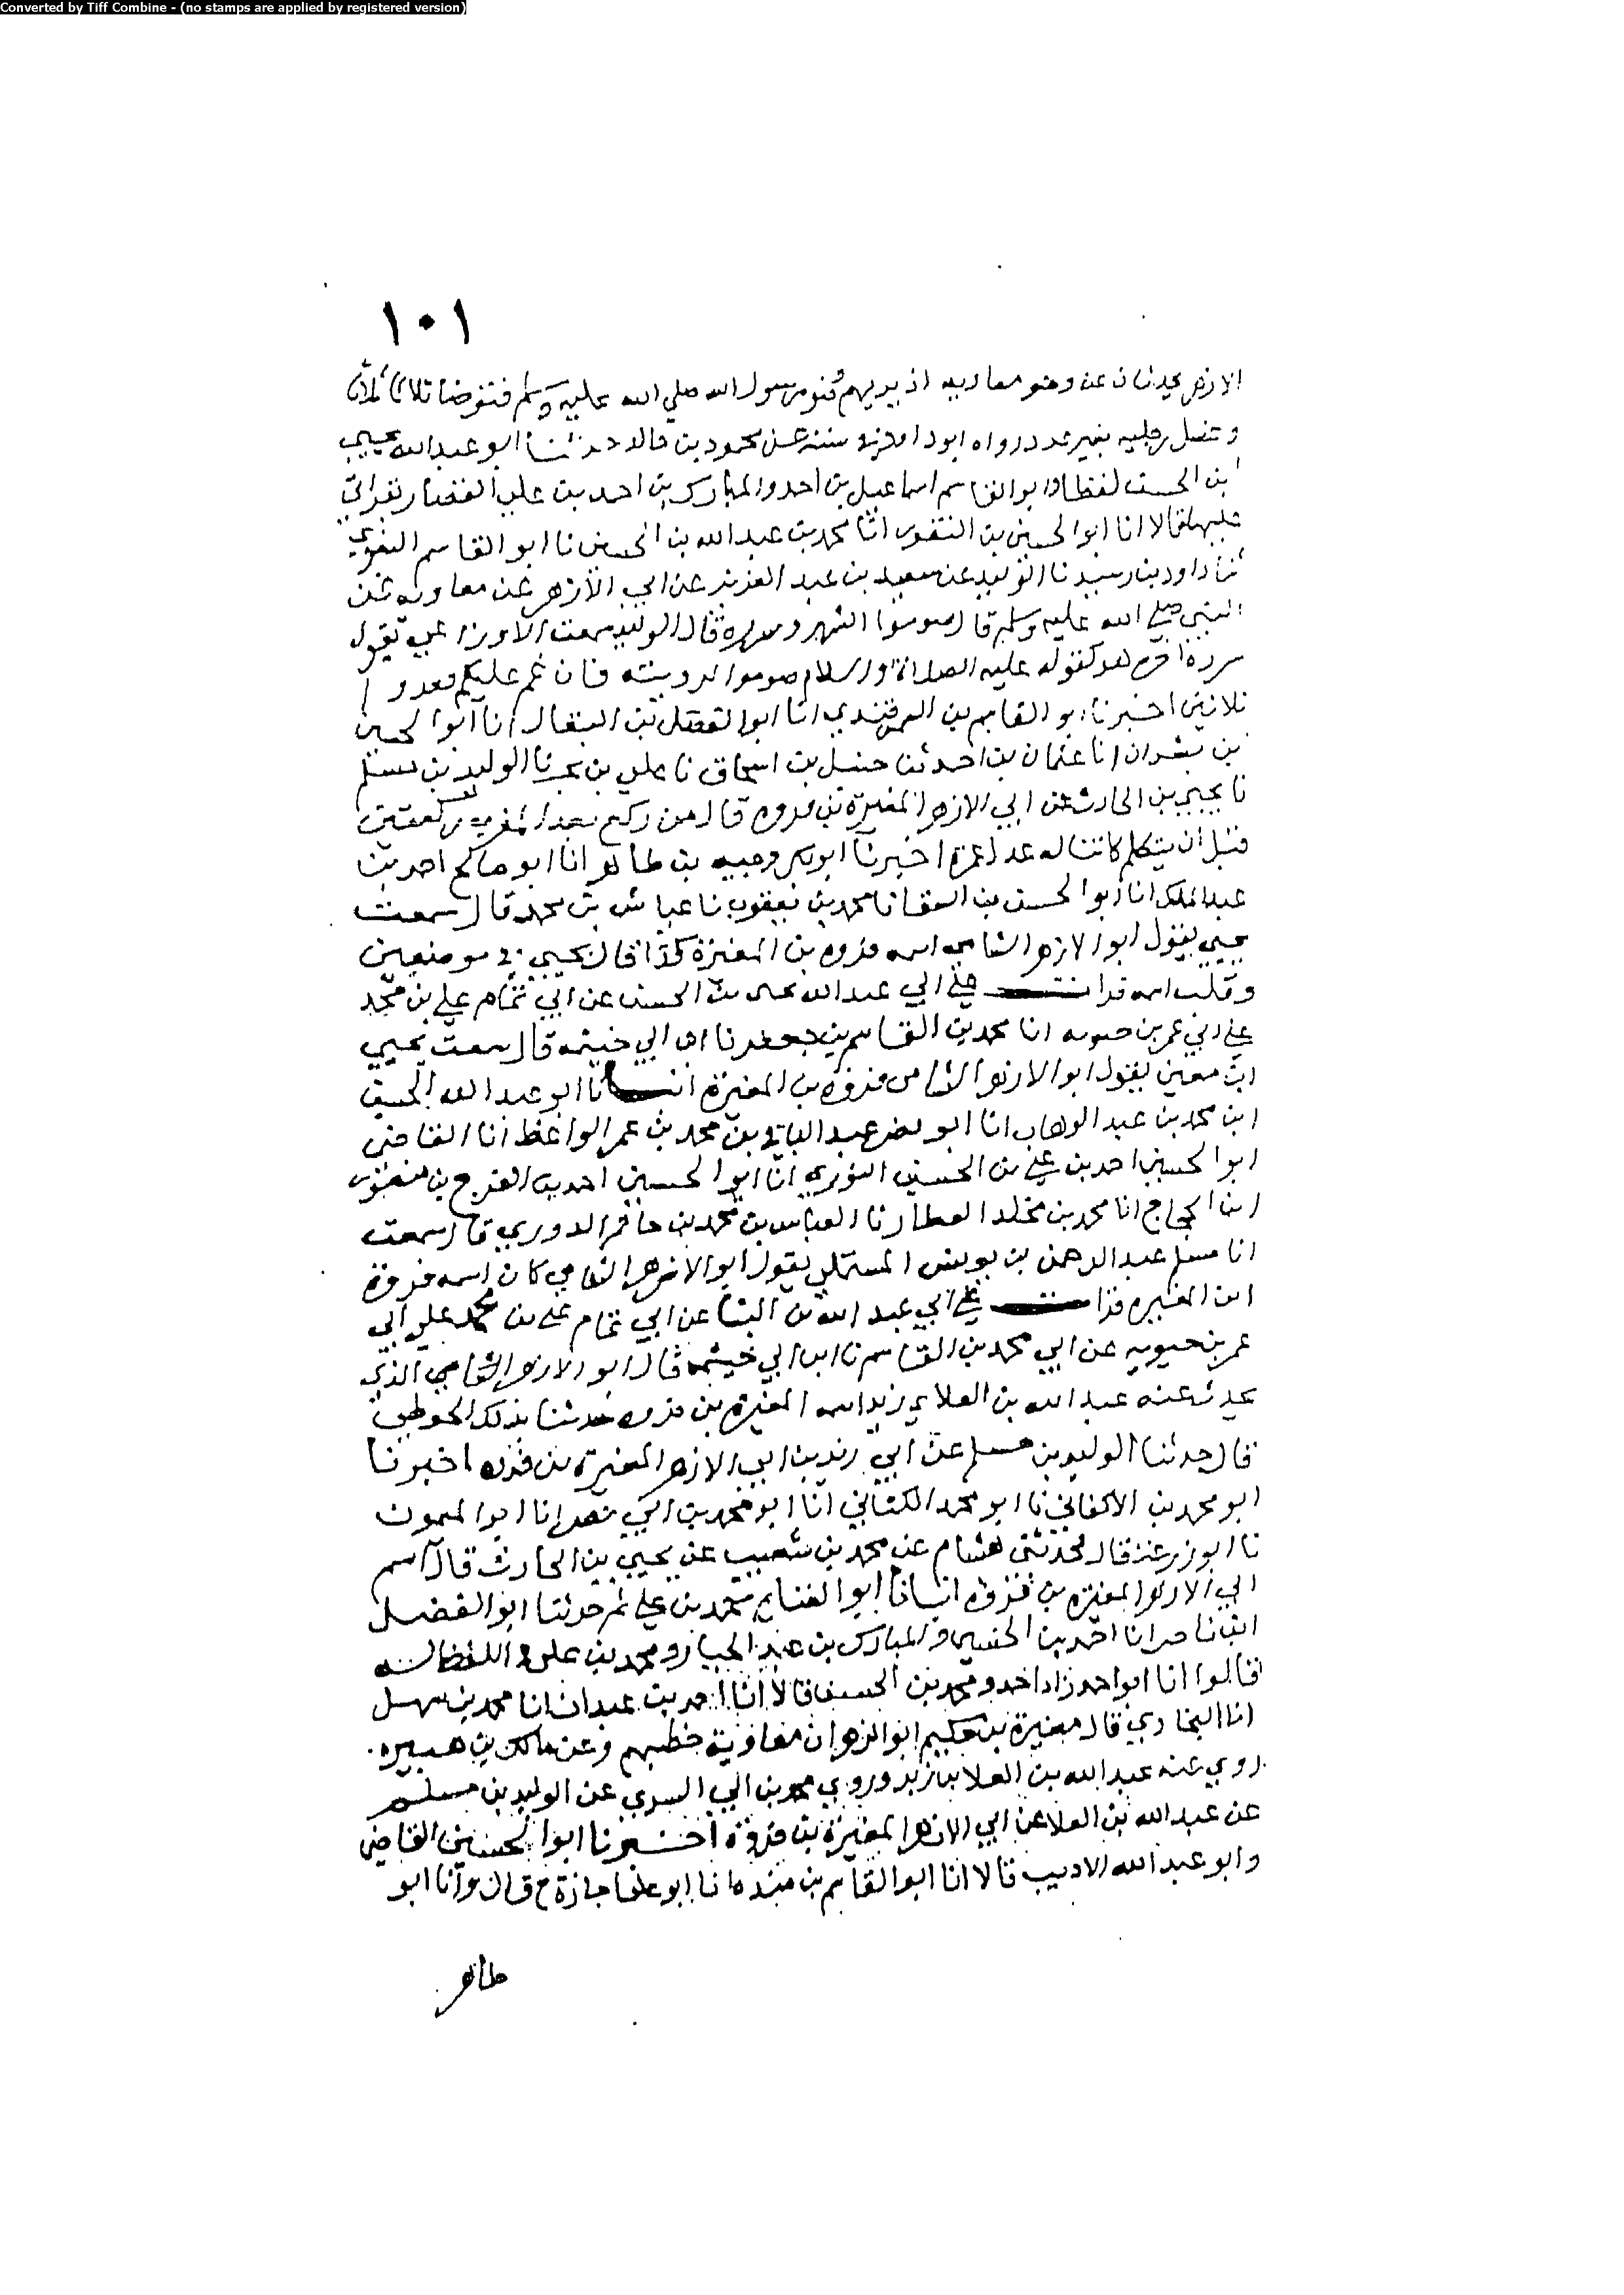 Converted by Tiff Combine - (no stamps are applied by registered version)
١٠١
الازهر يحدثان عن وضو معاويه اذ يريهم وضو رسول الله صلي الله عليه وسلم فتوضا ثلاثا ثلاثا
وغسل رجليه بغير عدد رواه ابو داود في سننه عن محمود بن خالد حدثنا ابو عبد الله يحيي
ابن الحسن لفظا وابو القاسم اسماعيل بن احمد والمبارك بن احمد بن علي القصار بقراتي
عليهما قالا انا ابو الحسين بن النقور انا محمد بن عبد الله بن الحسين نا ابو القاسم البغوي
نا داود بن رشيد نا الوليد عن سعيد بن عبد العزيز عن ابي الازهر عن معاويه عن
النبي صلي الله عليه وسلم قال صوموا الشهر وسرره قال الوليد سمعت الاوزاعي يقول
سرره اخره هو كقوله عليه الصلاة والسلام صوموا لرويته فان غم عليكم فعدوا
ثلاثين اخبرنا ابو القاسم بن السمرقندي انا ابو الفضل بن البقال انا ابو الحسين
بن بشران انا عثمان بن احمد ثنا حنبل بن اسحاق نا علي بن بحر نا الوليد بن مسلم
نا يحيي بن الحارث عن ابي الازهر المغيرة بن فروه قال من ركع بعد المغرب ركعتين
قبل ان يتكلم كانتا له عدل عمرة اخبرنا ابو بكر وجيه بن طاهر انا ابو صالح احمد بن
عبد الملك انا ابو الحسن بن السقا نا محمد بن يعقوب نا عباس بن محمد قال سمعت
يحيي يقول ابو الازهر الشامي اسمه فروه بن المغيرة كذا قال يحيي في موضعين
وقلب اسمه قرات علي ابي عبد الله يحيي بن الحسن عن ابي تمام علي بن محمد
علي ابي عمر بن حيويه انا محمد بن القاسم بن جعفر نا ابن ابي خيثمه قال سمعت يحيي
ابن معين يقول ابو الازهر الشامي فروه بن المغيرة انبانا ابو عبد الله الحسين
ابن محمد بن عبد الوهاب انا ابو نصر عبد الباقي بن محمد بن عمر الواعظ انا القاضي
ابو الحسين احمد بن علي بن الحسين التوزي انا ابو الحسين احمد بن الفرج بن منصور
ابن الحجاج انا محمد بن مخلد العطار نا العباس بن محمد بن حاتم الدوري قال سمعت
انا مسلم عبد الرحمن بن يونس المستملي يقول ابو الازهر الشامي كان اسمه فروة
ابن المغيره قرات علي ابي عبد الله بن البنا عن ابي تمام علي بن محمد علي ابي
عمر بن حيويه عن ابي محمد بن القاسم نا ابن ابي خيثمه قال ابو الازهر الشامي الذي
يحدث عنه عبد الله بن العلا بن زبر اسمه المغيرة بن فروه حدثنا بذلك الحوطي
قال حدثنا الوليد بن مسلم عن ابي زبر بن ابي الازهر المغيرة بن فروه اخبرنا
ابو محمد بن الاكفاني نا ابو محمد الكتاني انا ابو محمد بن ابي نصر انا ابو الميمون
نا ابو زرعة قال فحدثني هشام عن محمد بن شعيب عن يحيي بن الحارث قال اسم
ابي الازهر المغيره بن فروه انبانا ابو الغنايم محمد بن علي ثم حدثنا ابو الفضل
ابن ناصر انا احمد بن الحسن والمبارك بن عبد الجبار ومحمد بن علي واللفظ له
قالوا انا ابو احمد زاد احمد ومحمد بن الحسن قالا انا احمد بن عبدان انا محمد بن سهل
انا البخاري قال مغيرة بن حكيم ابو الازهر ان معاوية خطبهم وعن مالك بن هبيره
روي عنه عبد الله بن العلا بن زبر وروي محمد بن ابي السري عن الوليد بن مسلم
عن عبد الله بن العلا عن ابي الازهر المغيرة بن فروة اخبرنا ابو الحسين القاضي
وابو عبد الله الاديب قالا انا ابو القاسم بن منده انا ابو علي اجازة ح قال وانا ابو
طاهر